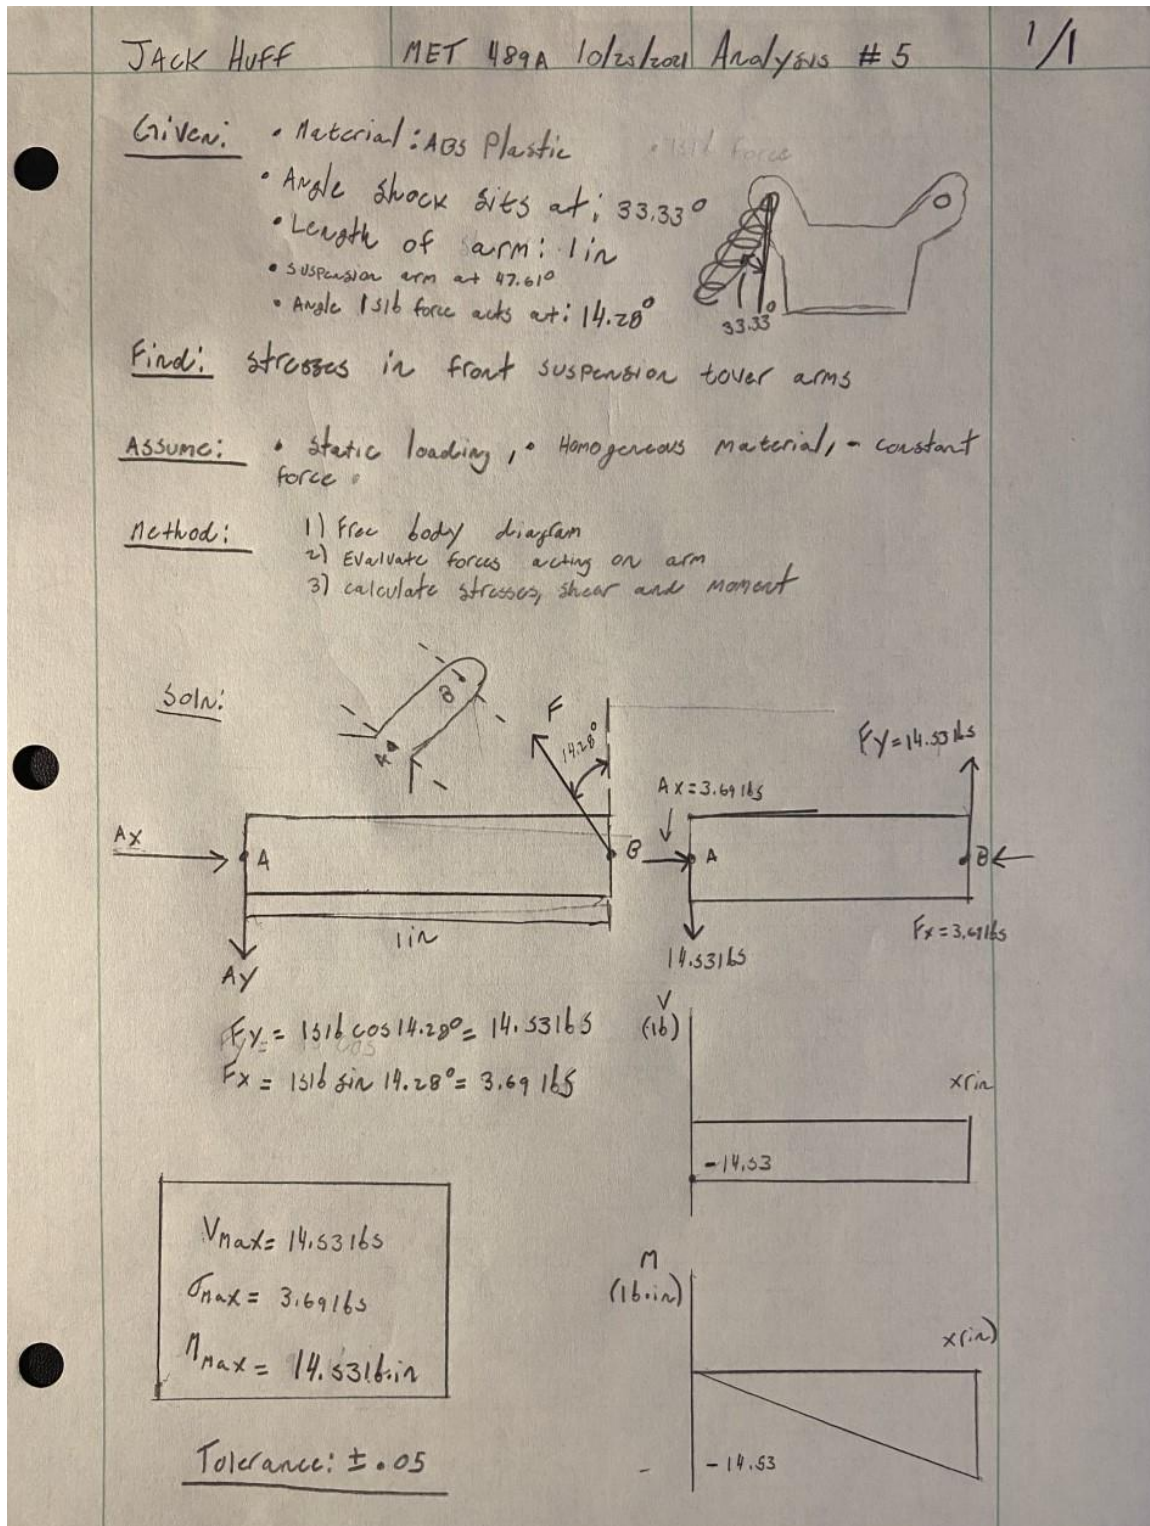 JACK HUFF MET 489A 10/25/2021 Analysis #5 1/1
Given: • Material: ABS Plastic • 15lb force
• Angle shock sits at: 33.33°
• Length of arm: 1 in
• suspension arm at 47.61°
• Angle 15lb force acts at: 14.28°
33.33°
Find: stresses in front suspension tower arms
Assume: • Static loading, • Homogeneous material, - constant
force
Method: 1) Free body diagram
2) Evaluate forces acting on arm
3) calculate stresses, shear and moment
Soln:
B
A
F
14.28°
Fy=14.53lbs
Ax=3.69lbs
Ax
A
B
A
B
1in
Fx=3.69lbs
Ay
14.53lbs
Fy= 15lb cos 14.28°= 14.53lbs
Fx = 15lb sin 14.28°= 3.69 lbs
V
(lb)
x(in
-14.53
Vmax= 14.53lbs
σmax= 3.69lbs
Mmax= 14.53lb.in
M
(lb.in)
x(in)
-14.53
Tolerance: ±.05